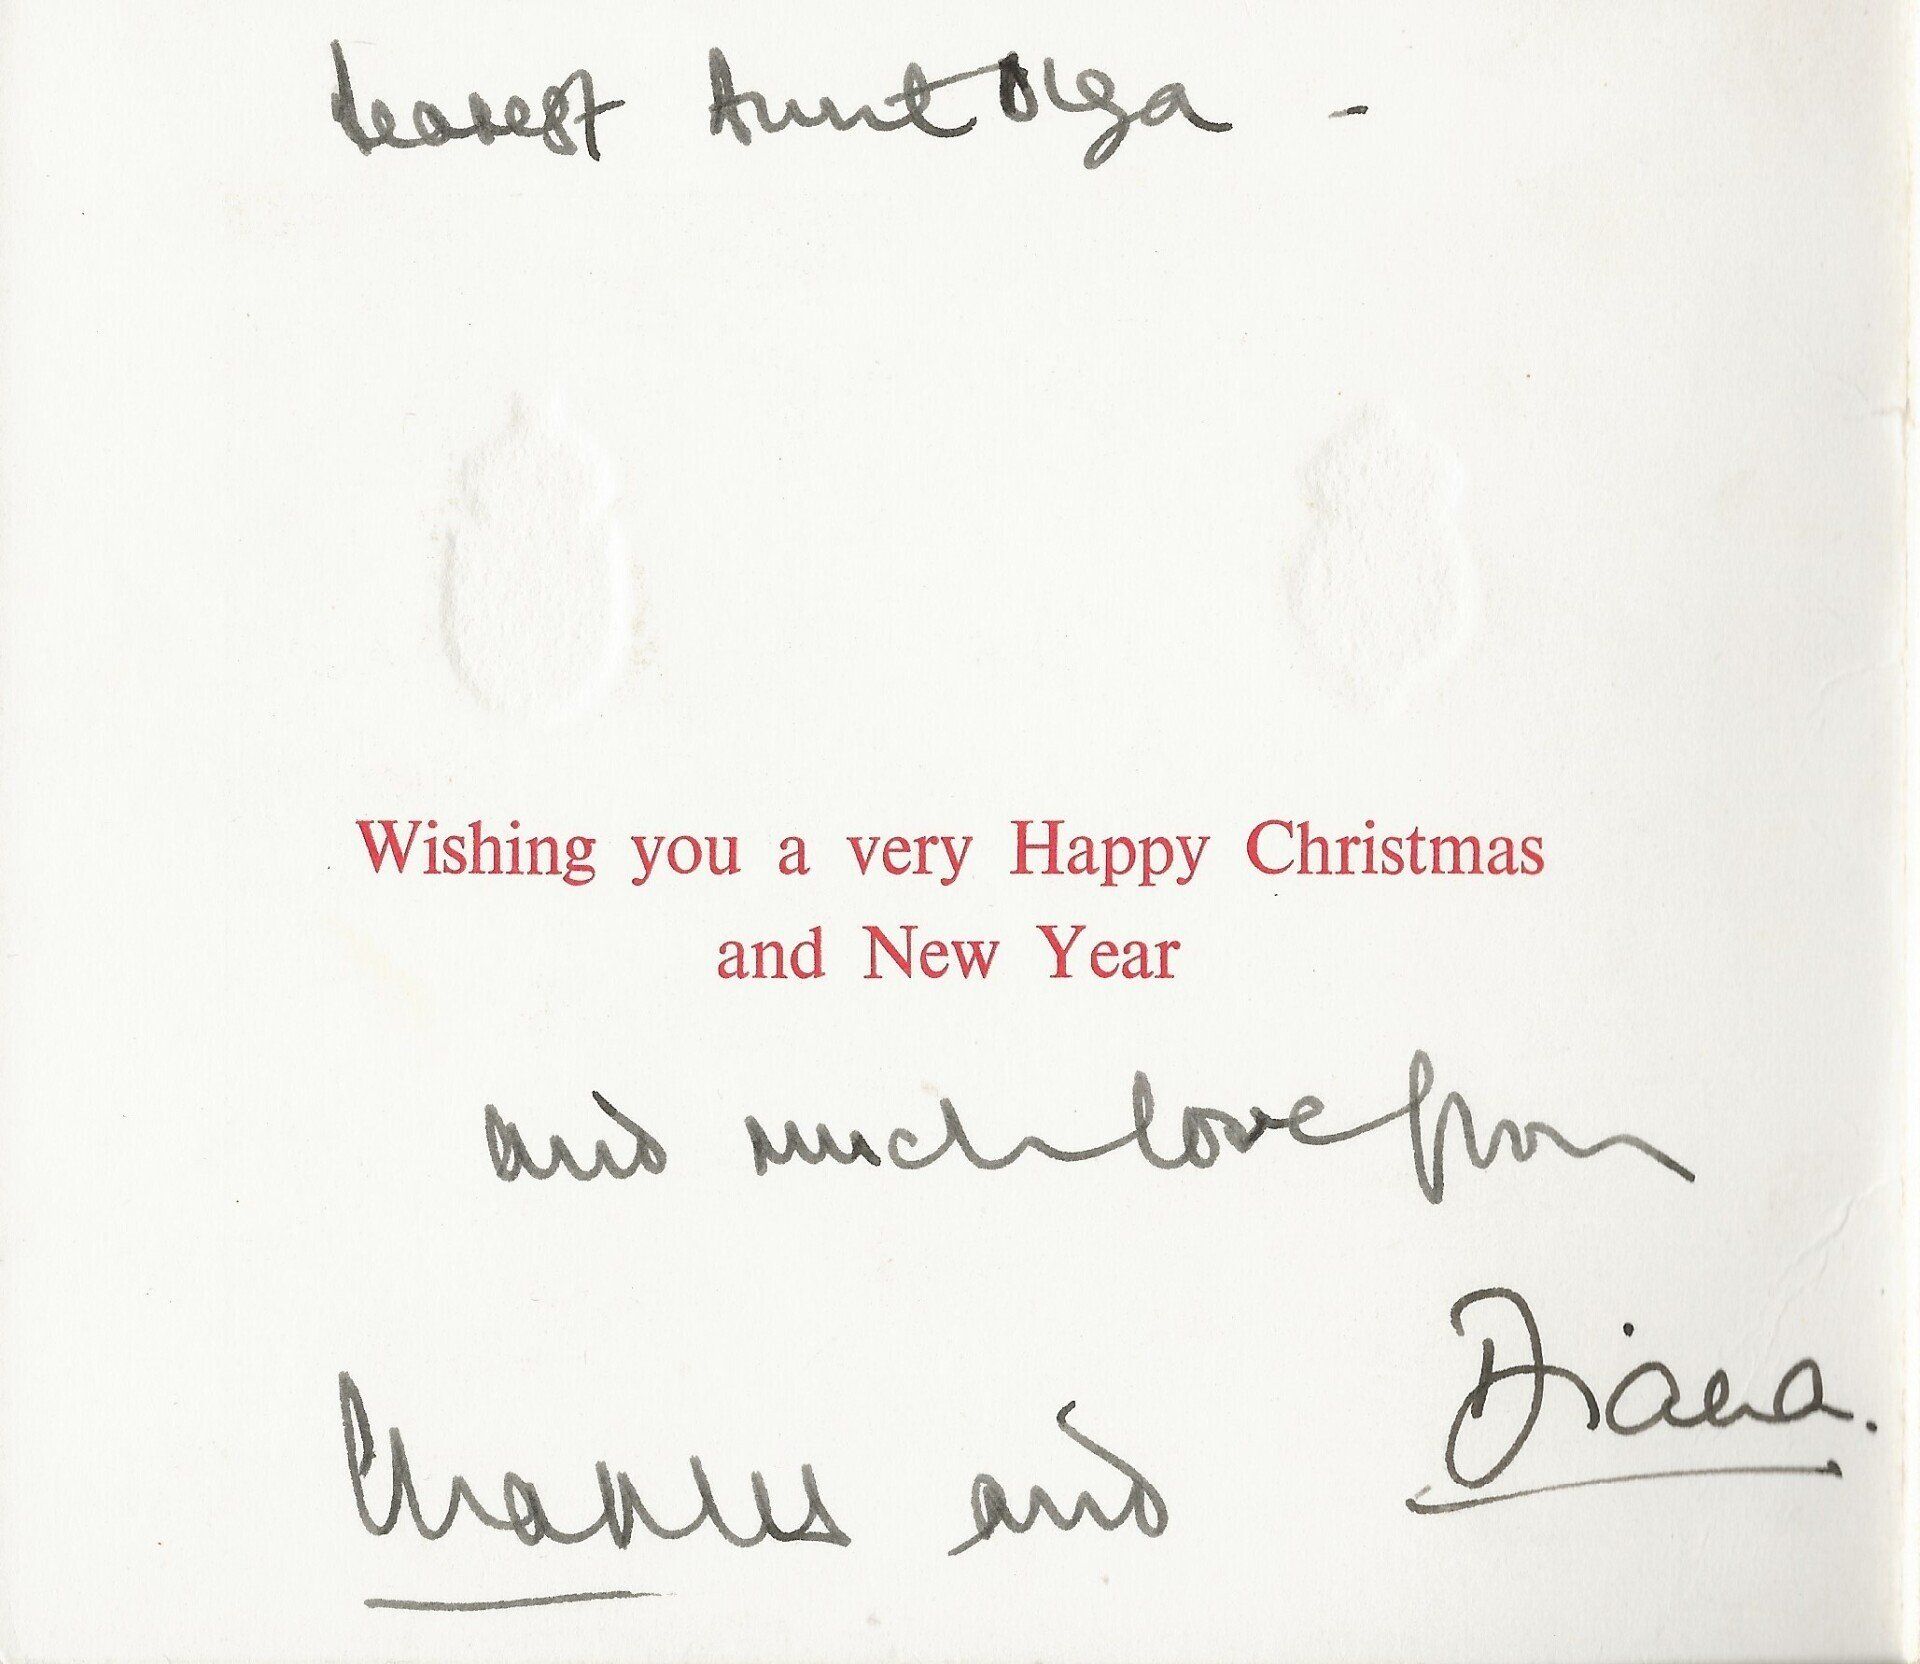 Dearest Aunt Olga -
Wishing you a very Happy Christmas
and New Year
and much love from
Charles and Diana.